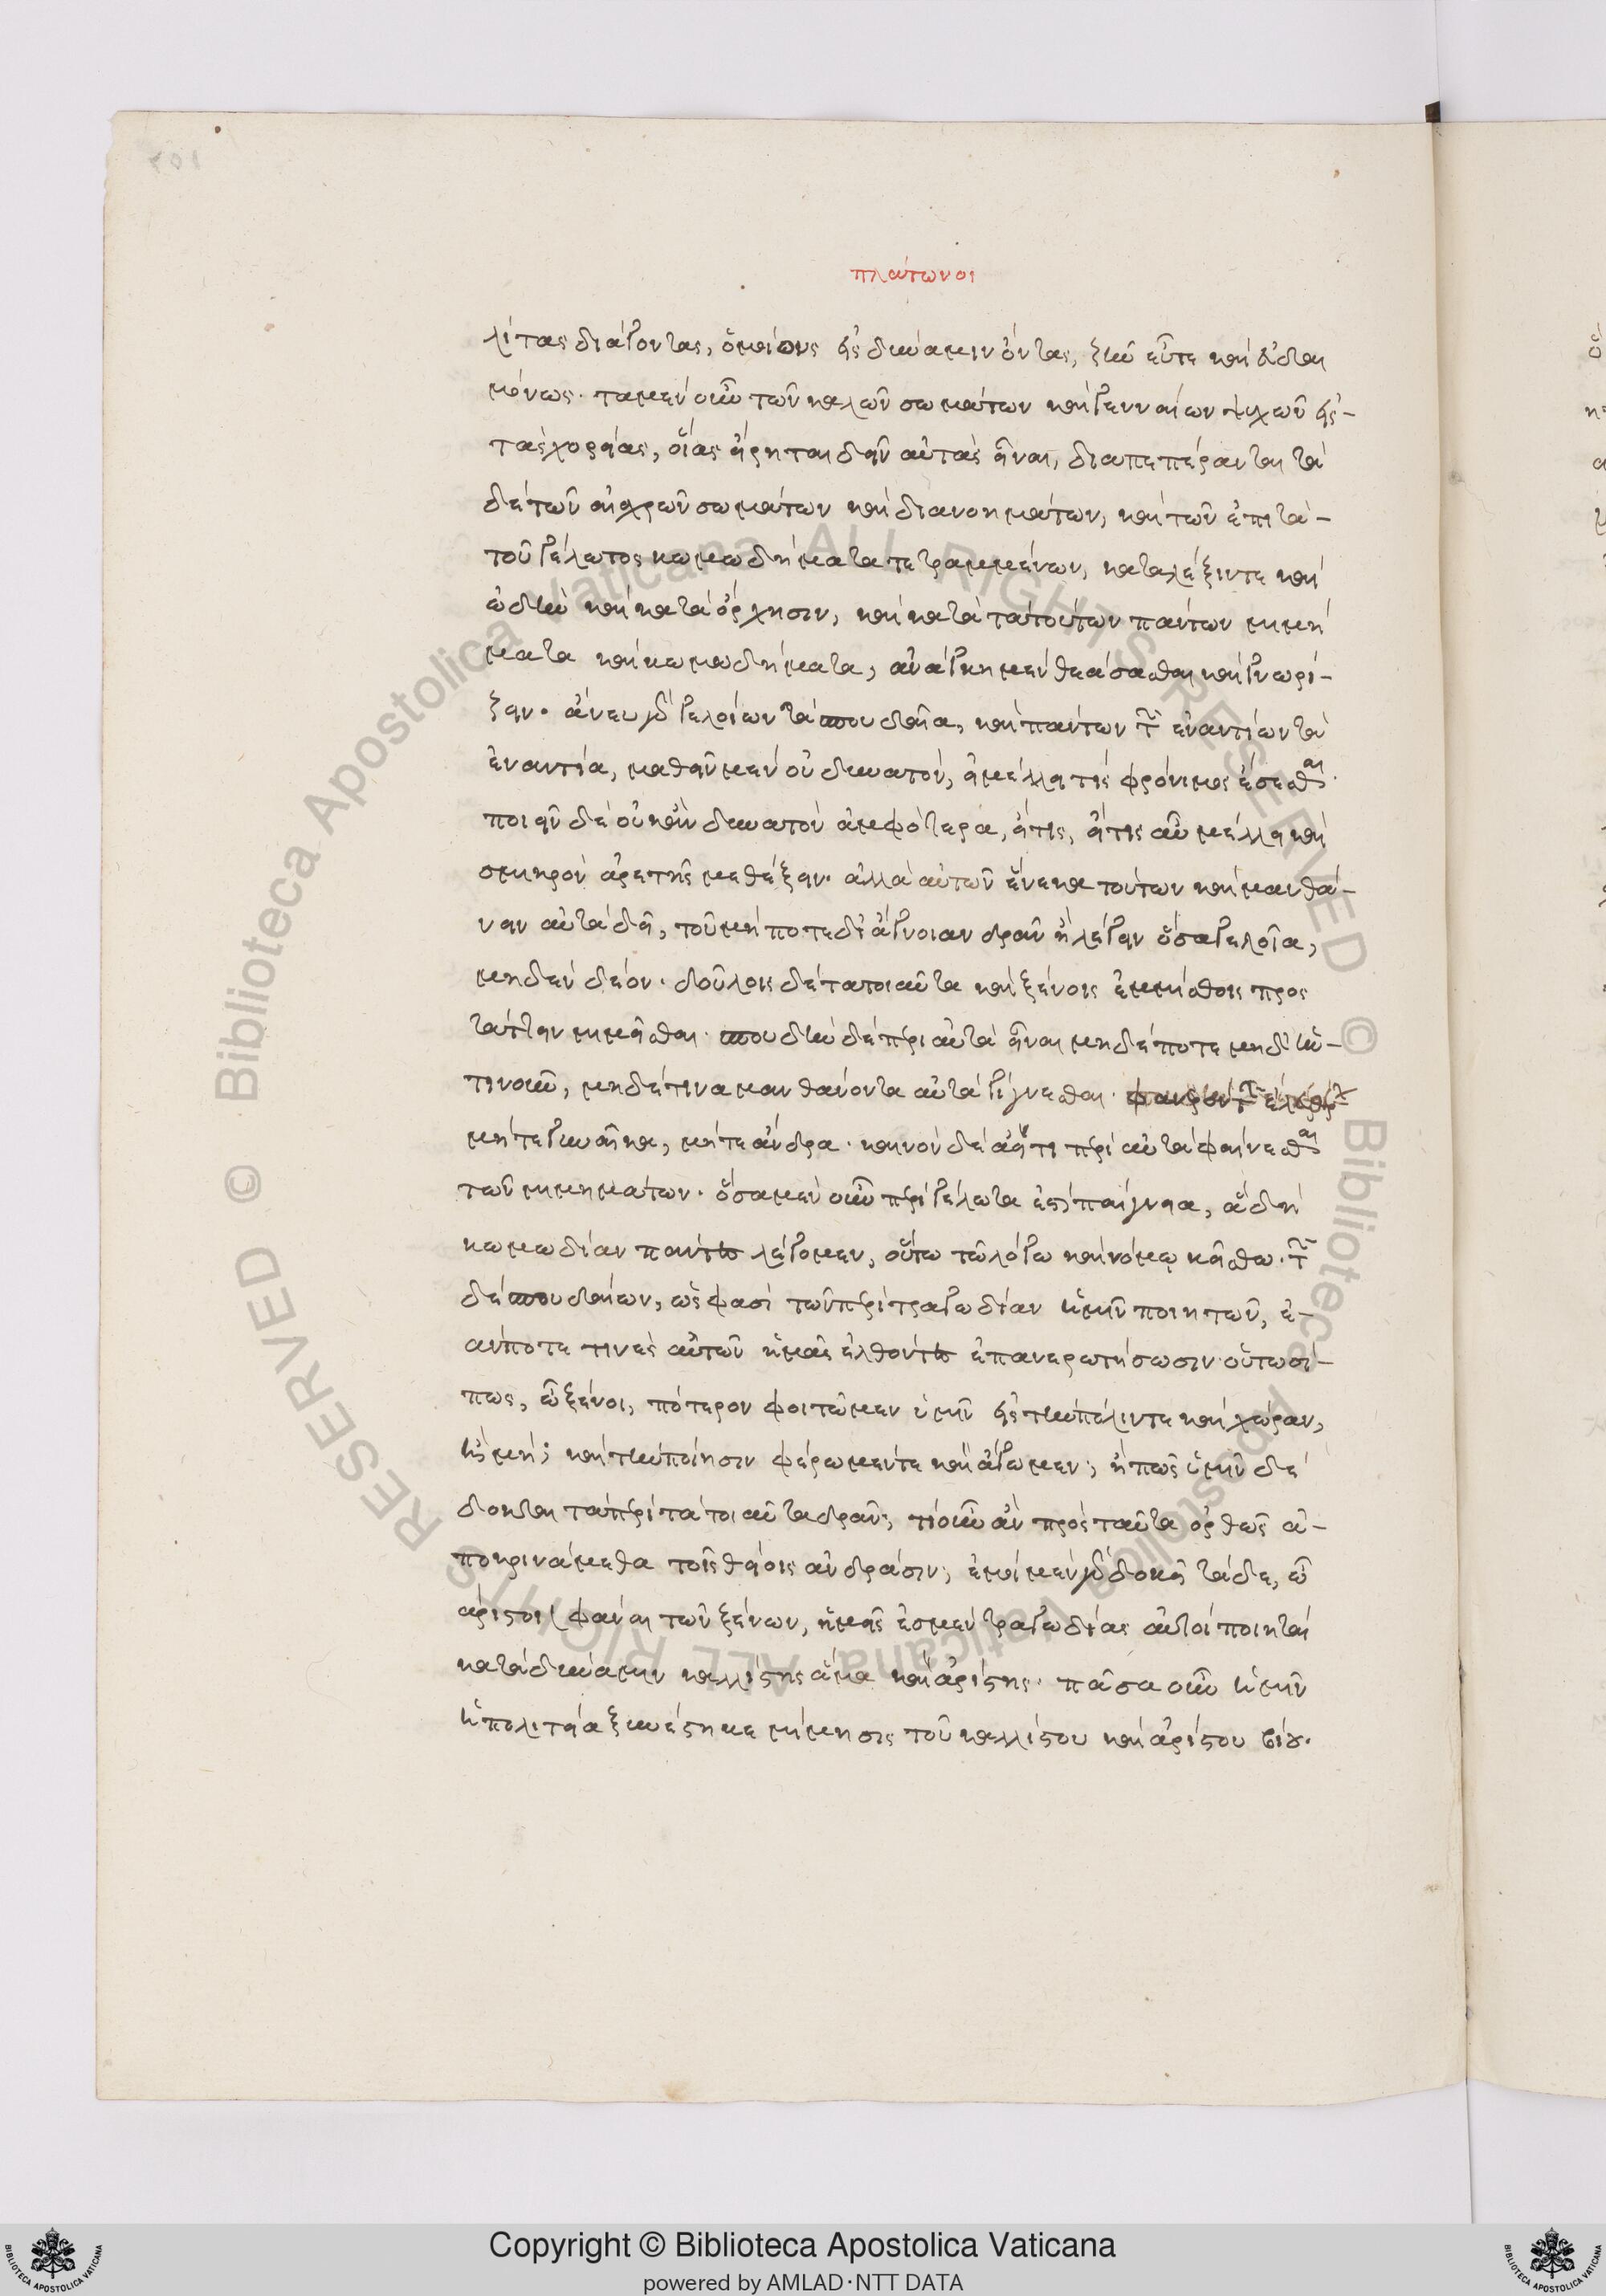 πλάτωνος
λίτας διάγοντας, ὁμοίους εἰς δύναμιν ὄντας, ζῆν εὖ τε καὶ εὐδαι
μόνως. τὰ μὲν οὖν τῶν καλῶν σωμάτων καὶ γενναίων ψυχῶν εἰς
τὰς χορείας, οἵας εἴρηται δεῖν αὐτὰς εἶναι, διαπεπέρανται τὰ
δὲ τῶν αἰσχρῶν σωμάτων καὶ διανοημάτων, καὶ τῶν ἐπὶ τὰ
τοῦ γέλωτος κωμωδήματα τετραμμένων, κατὰ λέξιν τε καὶ
ὠδὴν καὶ κατὰ ὄρχησιν, καὶ κατὰ τὰ τούτων πάντων μιμή
ματα καὶ κωμωδήματα, ἀνάγκη μὲν θεάσασθαι καὶ γνωρί-
ζειν. ἄνευ γὰρ γελοίων τὰ σπουδαῖα, καὶ πάντων τῶν ἐναντίων τὰ
ἐναντία, μαθεῖν μὲν οὐ δυνατόν, εἰ μέλλει τις φρόνιμος ἔσεσθαι.
ποιεῖν δὲ οὐκ ἂν δυνατὸν ἀμφότερα, εἴ τις, εἴ τις αὖ μέλλει καὶ
σμικρὸν ἀρετῆς μεθέξειν. ἀλλὰ αὐτῶν ἕνεκα τούτων καὶ μανθά-
νειν αὐτὰ δεῖ, τοῦ μή ποτε δι' ἄγνοιαν δρᾶν ἢ λέγειν ὅσα γελοῖα,
μηδὲν δέον. δούλοις δὲ τὰ τοιαῦτα καὶ ξένοις ἐμμίσθοις προσ
τάττειν μιμεῖσθαι. σπουδὴν δὲ περὶ αὐτὰ εἶναι μηδέποτε μηδ' ἥν-
τινοῦν, μηδέ τινα μανθάνοντα αὐτὰ γίγνεσθαι φανερὸν τῶν ἐλευθέρων
μήτε γυναῖκα, μήτε ἄνδρα. καινὸν δὲ ἀεί τι περὶ αὐτὰ φαίνεσθαι
τῶν μιμημάτων. ὅσα μὲν οὖν περὶ γέλωτα ἐστὶ παίγνια, ἃ δὴ
κωμωδίαν πάντες λέγομεν, οὕτω τῶ λόγω καὶ νόμῳ κείσθω. τῶν
δὲ σπουδαίων, ὥς φασι τῶν περὶ τραγωδίαν ἡμῖν ποιητῶν, ἐ-
άν ποτέ τινες αὐτῶν ἡμᾶς ἐλθόντες ἐπανερωτήσωσιν οὑτωσί
πως, ὦ ξένοι, πότερον φοιτῶμεν ὑμῖν εἰς τὴν πόλιν τε καὶ χώραν,
ἢ μή; καὶ τὴν ποίησιν φέρωμέν τε καὶ ἄγωμεν; ἢ πῶς ὑμῖν δέ
δοκται τὰ περὶ τὰ τοιαῦτα δρᾶν; τί οὖν ἂν πρὸς ταῦτα ὀρθῶς ἀ-
ποκριναίμεθα τοῖς θείοις ἀνδράσιν; ἐμοὶ μὲν γὰρ δοκεῖ τάδε, ὦ
ἄριστοι φάναι τῶν ξένων, ἡμεῖς ἐσμὲν τραγωδίας αὐτοὶ ποιηταὶ
κατὰ δύναμιν καλλίστης ἅμα καὶ ἀρίστης. πᾶσα οὖν ἡμῖν
ἡ πολιτεία ξυνέστηκε μίμησις τοῦ καλλίστου καὶ ἀρίστου βίου.
Copyright © Biblioteca Apostolica Vaticana
powered by AMLAD·NTT DATA